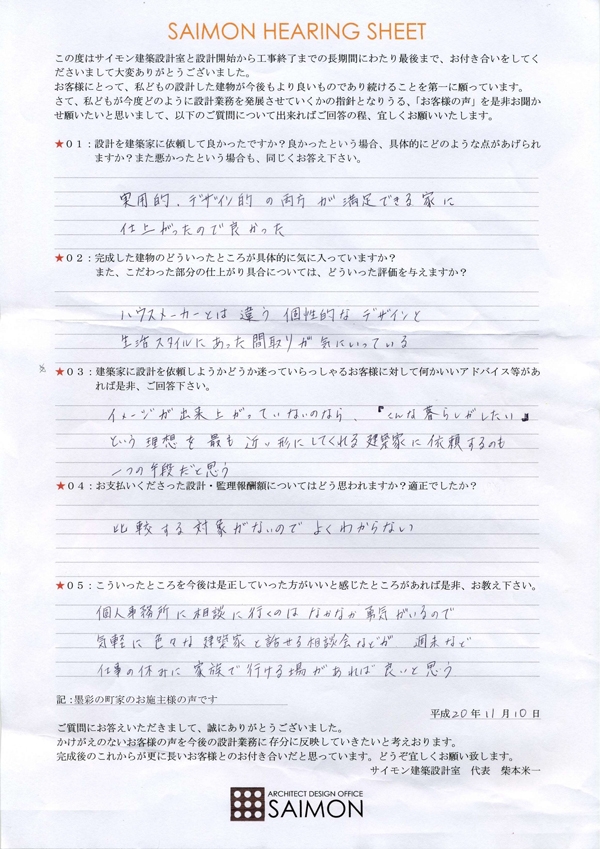 SAIMON HEARING SHEET
この度はサイモン建築設計室と設計開始から工事終了までの長期間にわたり最後まで、お付き合いをしてく
ださいまして大変ありがとうございました。
お客様にとって、私どもの設計した建物が今後もより良いものであり続けることを第一に願っています。
さて、私どもが今度どのように設計業務を発展させていくかの指針となりうる、「お客様の声」を是非お聞か
せ願いたいと思いまして、以下のご質問について出来ればご回答の程、宜しくお願いいたします。
★０１：設計を建築家に依頼して良かったですか？良かったという場合、具体的にどのような点があげられ
ますか？また悪かったという場合も、同じくお答え下さい。
実用的、デザイン的の両方が満足できる家に
仕上がったので良かった
★０２：完成した建物のどういったところが具体的に気に入っていますか？
また、こだわった部分の仕上がり具合については、どういった評価を与えますか？
ハウスメーカーとは違う個性的なデザインと
生活スタイルにあった間取りが気にいっている
※
★０３：建築家に設計を依頼しようかどうか迷っていらっしゃるお客様に対して何かいいアドバイス等があ
れば是非、ご回答下さい。
イメージが出来上がっていないのなら、『こんな暮らしがしたい』
という理想を最も近い形にしてくれる建築家に依頼するのも
一つの手段だと思う
★０４：お支払いくださった設計・監理報酬額についてはどう思われますか？適正でしたか？
比較する対象がないのでよくわからない
★０５：こういったところを今後は是正していった方がいいと感じたところがあれば是非、お教え下さい。
個人事務所に相談に行くのはなかなか勇気がいるので
気軽に色々な建築家と話せる相談会などが週末など
仕事の休みに家族で行ける場があれば良いと思う
記：墨彩の町家のお施主様の声です
平成20年11月10日
ご質問にお答えいただきまして、誠にありがとうございました。
かけがえのないお客様の声を今後の設計業務に存分に反映していきたいと考えおります。
完成後のこれからが更に長いお客様とのお付き合いだと思っています。どうぞ宜しくお願い致します。
サイモン建築設計室　代表　柴本米一
ARCHITECT DESIGN OFFICE
SAIMON